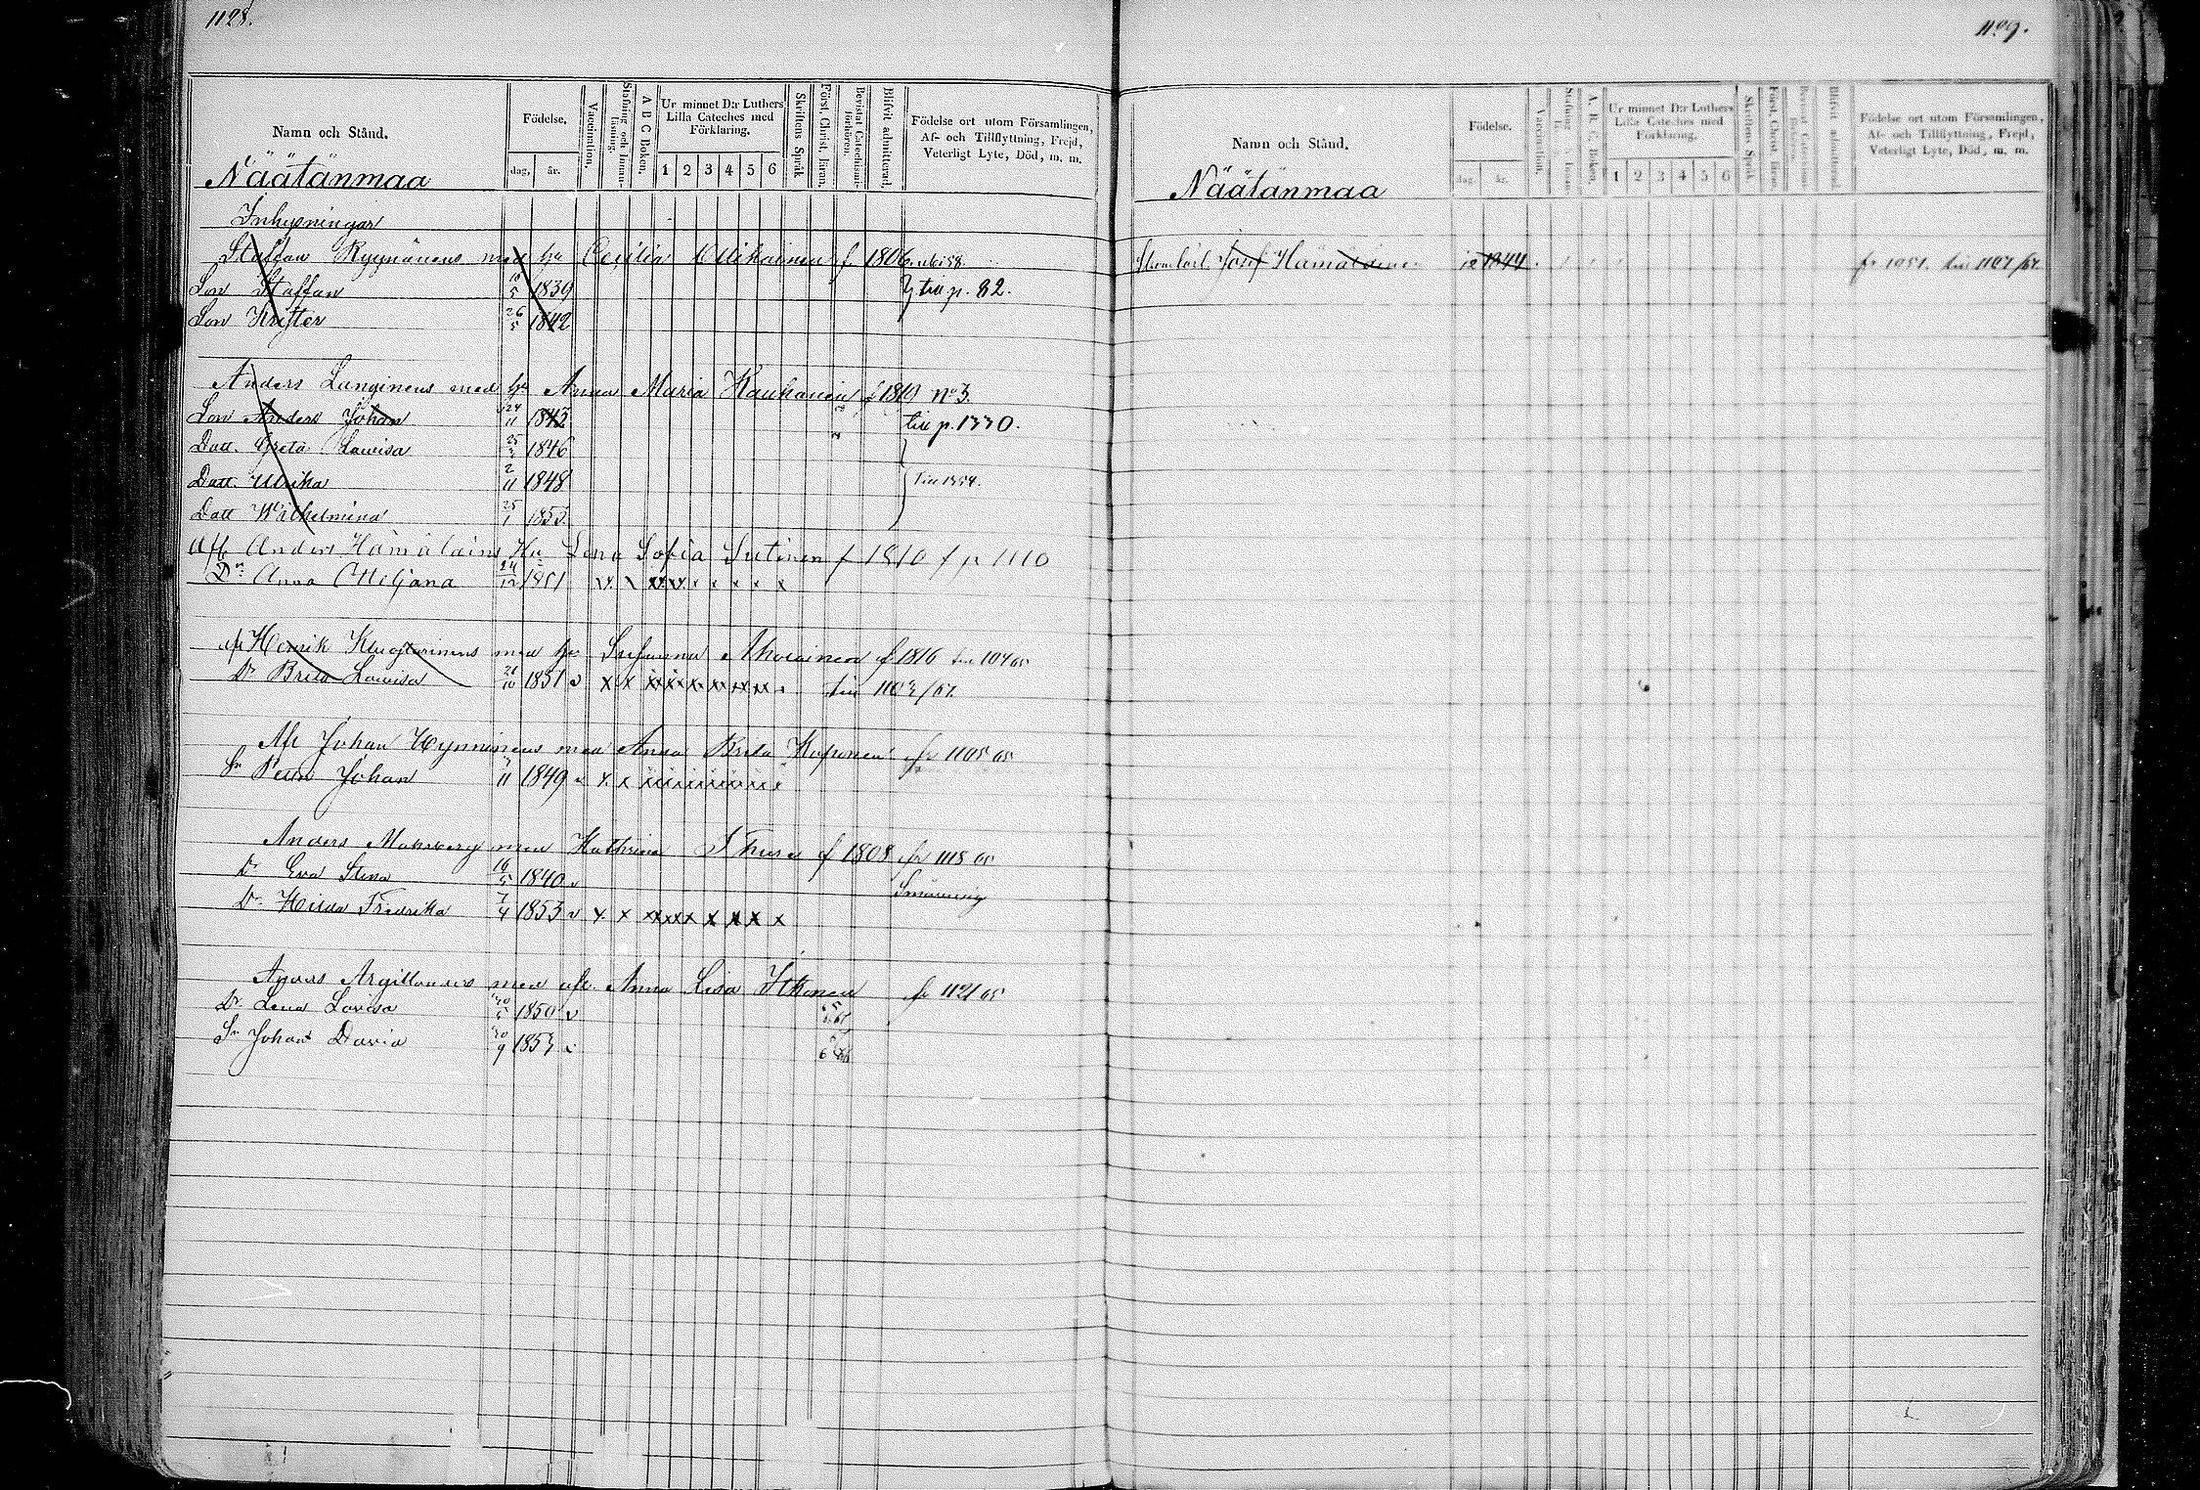 1128.
Namn och Stånd.
Födelse.
dag, år.
Vaccination.
Stafning och Innanläsning.
A B C Boken.
Ur minnet D:r Luthers Lilla Cateches med Förklaring.
1 2 3 4 5 6
Skriftens Språk
Först. Christ. läran.
Bevistat Catechismiförhören.
Blifvit admitterad.
Födelse ort utom Församlingen, Af- och Tillflyttning, Frejd, Veterligt Lyte, Död, m. m.
Näätänmaa
Inhysningar
Staffan Ryynänens med hu Cecilia Ollikainen f 1806
Son Staffan 10/5 1839 till p. 82.
Son Krister 26/5 1842
Anders Lunginens med hu Anna Maria Kauhanen f 1819 No 3.
Son Anders Johan 24/11 1843 till p. 1330.
Datt. Greta Lowisa 25/3 1846
Datt. Ulrika 2/11 1848 till 1354.
Datt Wilhelmina 25/1 1853.
Afl Anders Hämäläins Hu Lena Sofia Sutinen f 1810 f p 1110
Dr Anna Ottiljana 24/12 1851
afl Henrik med hu Susanna Ahvainen f 1816
Dr Brita Lowisa 1851 v x x
Afl Johan Hynninens med Anna Brita fr 1105 65
Sn Petter Johan 11 1849
Anders med Kathrina f 1808 fr 1118 65
Dr Eva Stina 16/5 1840 v
Dr Hilda Fredrika 7/4 1853 v x x
med afl. Anna Lisa Itkonen fr 1121 65
Dr Lena Lovisa 1850 v
Sn Johan David 30/9 1853
1129.
Namn och Stånd.
Födelse.
dag. år.
Vaccination.
A. B. C. Boken.
Ur minnet D:r Luthers Lilla Cateches med Förklaring.
1 2 3 4 5 6
Skriftens Språk
Först. Christ. läran.
Blifvit admitterad.
Födelse ort utom Församlingen, Af- och Tillflyttning, Frejd, Veterligt Lyte, Död, m. m.
Näätänmaa
Josef Hämäläinen 1844 fr 1051.